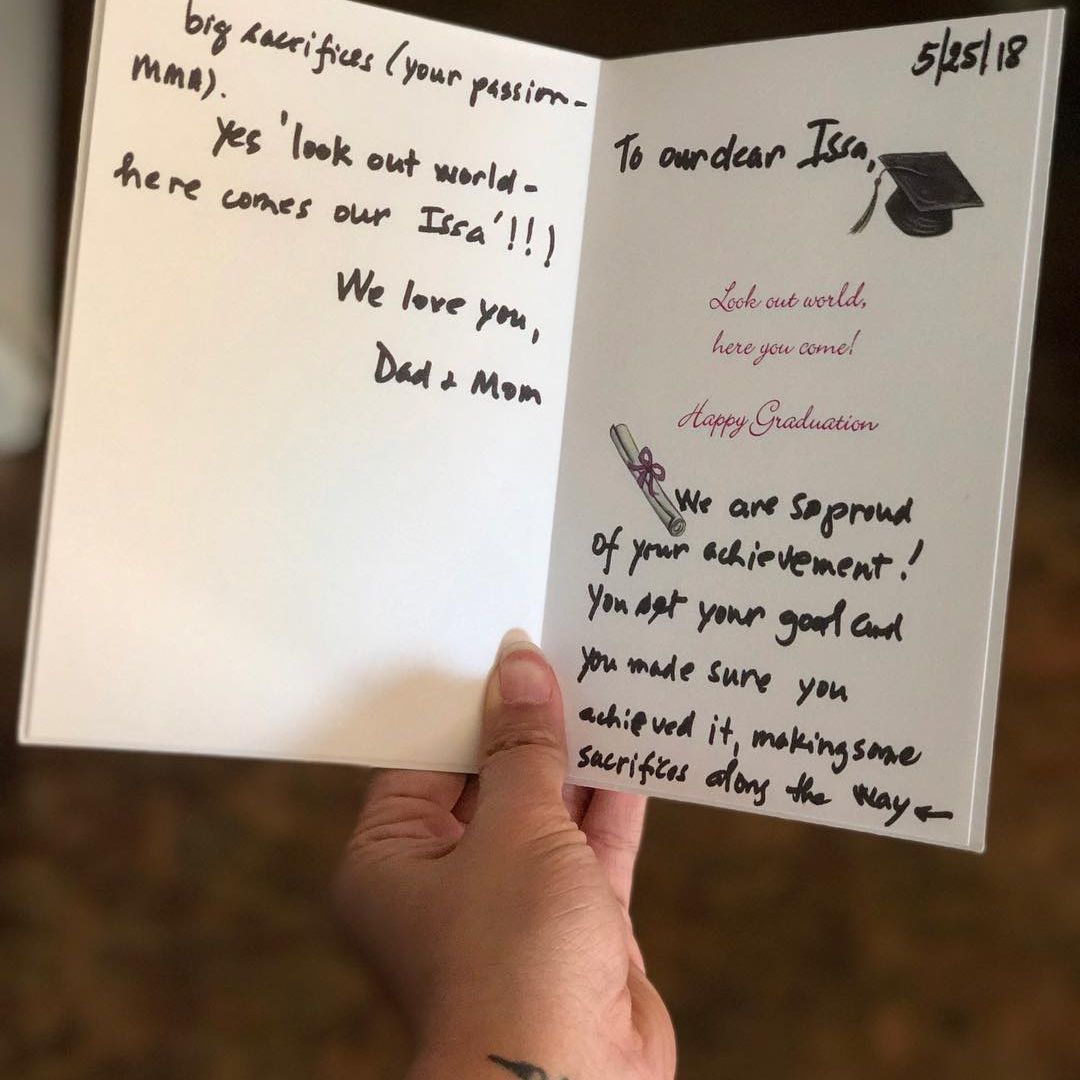 5/25/18
To our dear Issa,
Look out world,
here you come!
Happy Graduation
We are so proud
of your achievement!
You set your goal and
you made sure you
achieved it, making some
sacrifices along the way ←
big sacrifices (your passion-
MMA).
yes 'look out world-
here comes our Issa'!!)
We love you,
Dad & Mom